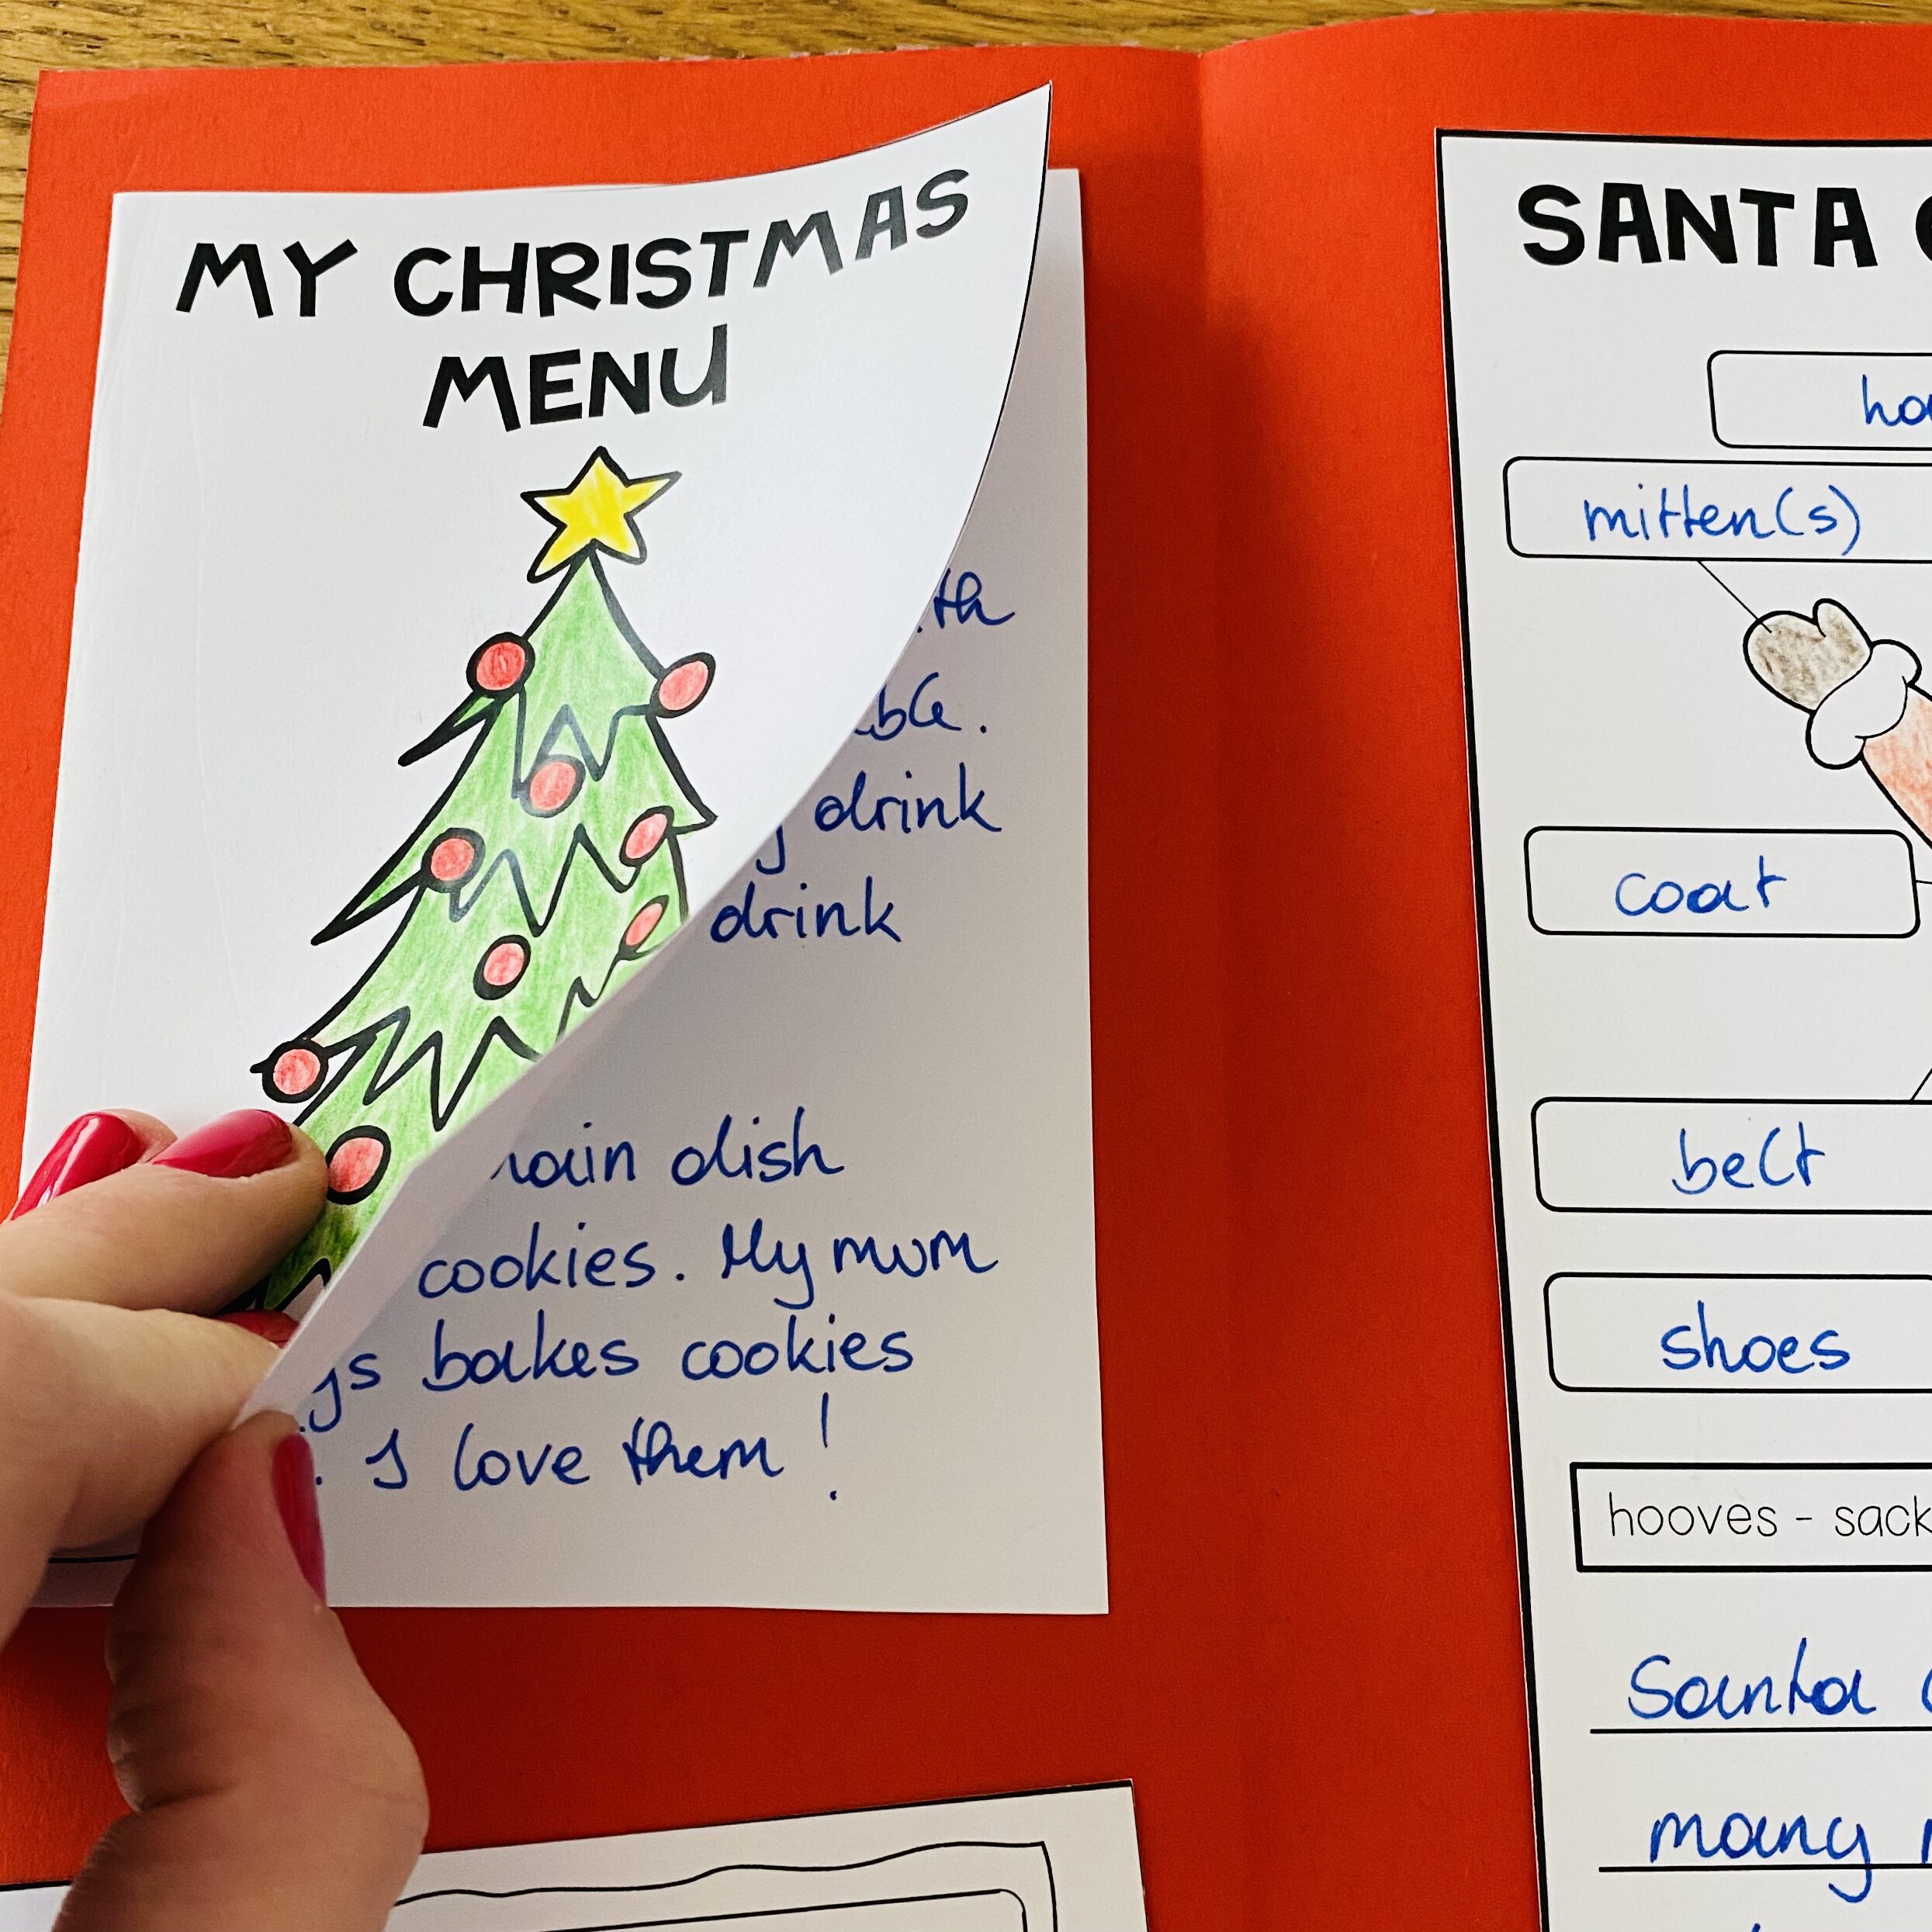 MY CHRISTMAS
MENU
drink
drink
dish
cookies. My mum
bakes cookies
I love them!
SANTA
mitten(s)
coat
belt
shoes
hooves - sack
Santa
many